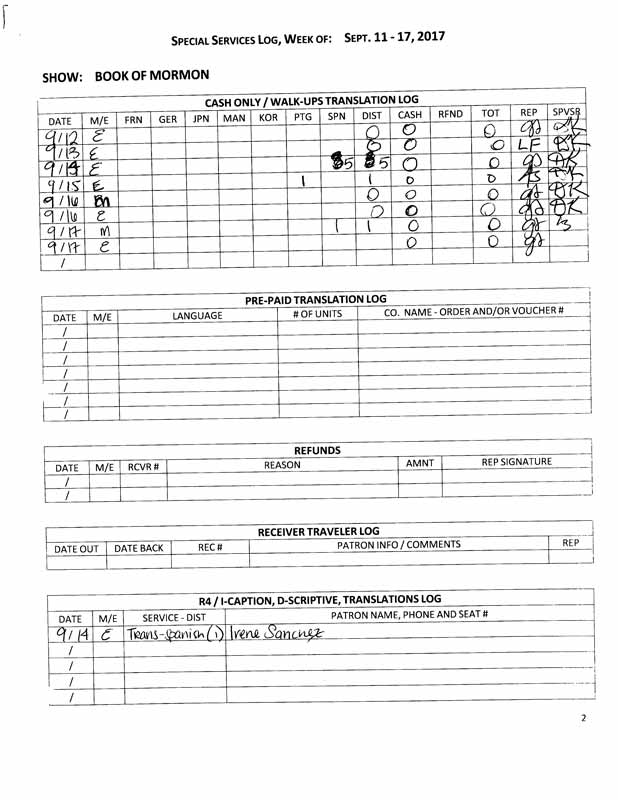 SPECIAL SERVICES LOG, WEEK OF: SEPT. 11 - 17, 2017
SHOW: BOOK OF MORMON
CASH ONLY / WALK-UPS TRANSLATION LOG
DATE M/E FRN GER JPN MAN KOR PTG SPN DIST CASH RFND TOT REP SPVSR
9/12 E 0 0 0
9/13 E 0 0 0 LF
9/14 E 5 5 0 0
9/15 E 1 1 0 0
9/16 m 0 0 0
9/16 E 0 0 0
9/17 m 1 1 0 0
9/17 e 0 0
/
PRE-PAID TRANSLATION LOG
DATE M/E LANGUAGE # OF UNITS CO. NAME - ORDER AND/OR VOUCHER #
/
/
/
/
/
/
/
REFUNDS
DATE M/E RCVR # REASON AMNT REP SIGNATURE
/
/
RECEIVER TRAVELER LOG
DATE OUT DATE BACK REC # PATRON INFO / COMMENTS REP
R4 / I-CAPTION, D-SCRIPTIVE, TRANSLATIONS LOG
DATE M/E SERVICE - DIST PATRON NAME, PHONE AND SEAT #
9/14 E Trans-spanish (1) Irene Sanchez
/
/
/
/
2